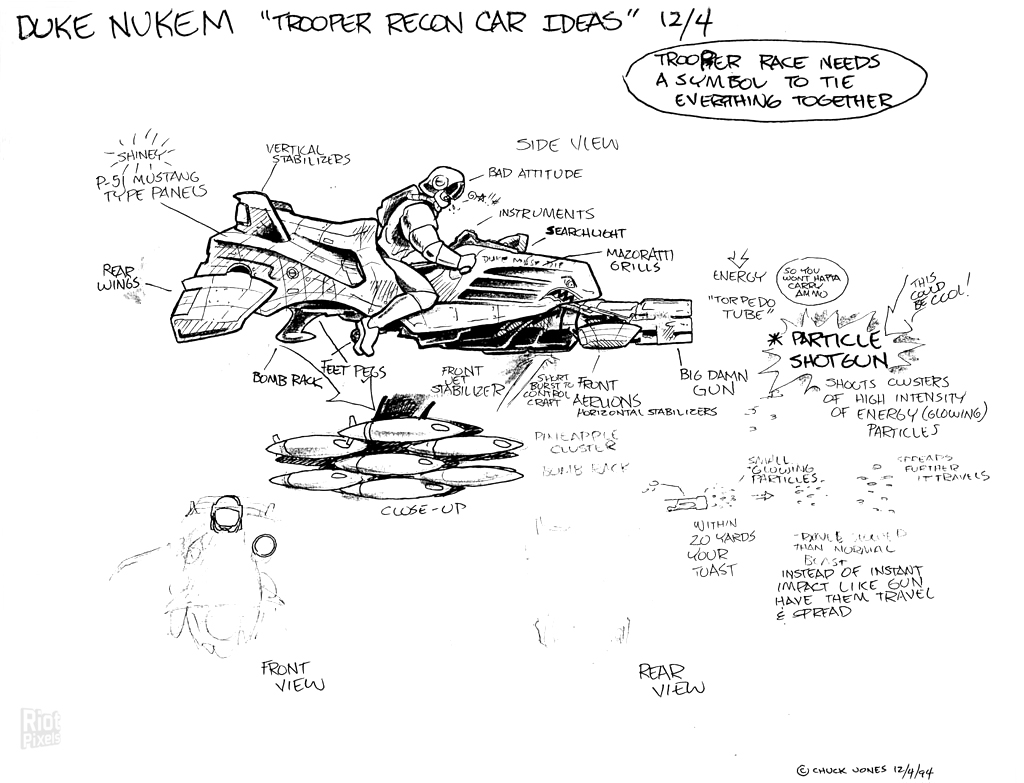 DUKE NUKEM "TROOPER RECON CAR IDEAS" 12/4
TROOPER RACE NEEDS
A SYMBOL TO TIE
EVERYTHING TOGETHER
SHINEY
P-51 MUSTANG
TYPE PANELS
VERTICAL
STABILIZERS
SIDE VIEW
BAD ATTITUDE
INSTRUMENTS
SEARCHLIGHT
MAZORATTI
GRILLS
REAR
WINGS
ENERGY
"TORPEDO
TUBE"
SO YOU
WONT HAFTA
CARRY
AMMO
THIS
COULD
BE COOL!
* PARTICLE
SHOTGUN
SHOOTS CLUSTERS
OF HIGH INTENSITY
OF ENERGY (GLOWING)
PARTICLES
BOMB RACK
FEET PEGS
FRONT
JET
STABILIZER
SHORT
BURST TO
CONTROL
CRAFT
FRONT
AERLIONS
HORIZONTAL STABILIZERS
BIG DAMN
GUN
PINEAPPLE
CLUSTER
BOMB RACK
CLOSE-UP
SMALL
GLOWING
PARTICLES
SPREADS
FURTHER
IT TRAVELS
WITHIN
20 YARDS
YOUR
TOAST
THAN NORMAL
INSTEAD OF INSTANT
IMPACT LIKE GUN
HAVE THEM TRAVEL
& SPREAD
FRONT
VIEW
REAR
VIEW
Riot
Pixels
© CHUCK JONES 12/4/94